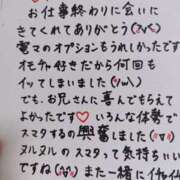 お仕事終わりに会いに
きてくれてありがとう(^v^)
電マのオプションもうれしかったです
オモチャ好きだから何回も
イッてしまいました(^/ω\)
でも、お兄さんに喜んでもらえて
よかったです♡いろんな体勢で
スマタするの興奮しました(^v^)
ヌルヌルのスマタって気持ちいい
ですね(^v^)また一緒にイチャイチャ